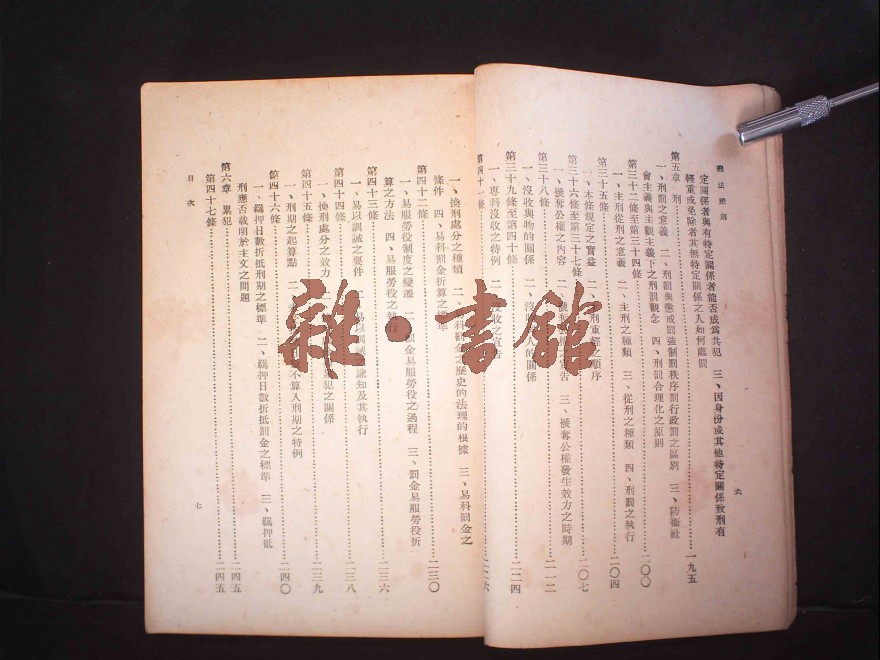 刑法總則
六
定關係者與有特定關係者能否成爲共犯 三、因身份或其他特定關係致刑有
輕重或免除者其無特定關係之人如何處罰
第五章 刑……一九五
一、刑罰之意義 二、刑罰與懲戒罰強制罰秩序罰行政罰之區別 三、防衛社
會主義與主觀主義下之刑罰觀念 四、刑罰合理化之原則
第三十二條至第三十四條……二〇〇
一、主刑從刑之意義 二、主刑之種類 三、從刑之種類 四、刑罰之執行
第三十五條……二〇四
一、本條規定之實益 二、刑重輕之順序
第三十六條至第三十七條……二〇七
一、褫奪公權之內容 二、褫奪公權之宣告 三、褫奪公權發生效力之時期
第三十八條……二一二
一、沒收與物的關係 二、沒收與人的關係
第三十九條至第四十條……二二四
一、專科沒收之特例 二、沒收之宣告
第四十一條……二二六
一、換刑處分之種類 二、易科罰金之歷史的法理的根據 三、易科罰金之
條件 四、易科罰金折算之標準
第四十二條……二三〇
一、易服勞役制度之變遷 二、罰金易服勞役之過程 三、罰金易服勞役折
算之方法 四、易服勞役之執行
第四十三條……二三六
一、易以訓誡之要件 二、易以訓誡之諭知及其執行
第四十四條……二三八
一、換刑處分之效力 二、犯之關係
第四十五條……二三九
一、刑期之起算點 二、不算入刑期之特例
第四十六條……二四〇
一、羈押日數折抵刑期之標準 二、羈押日數折抵罰金之標準 三、羈押抵
刑應否載明於主文之問題
第六章 累犯……二四五
第四十七條……二四五
目次
七
雜·書館